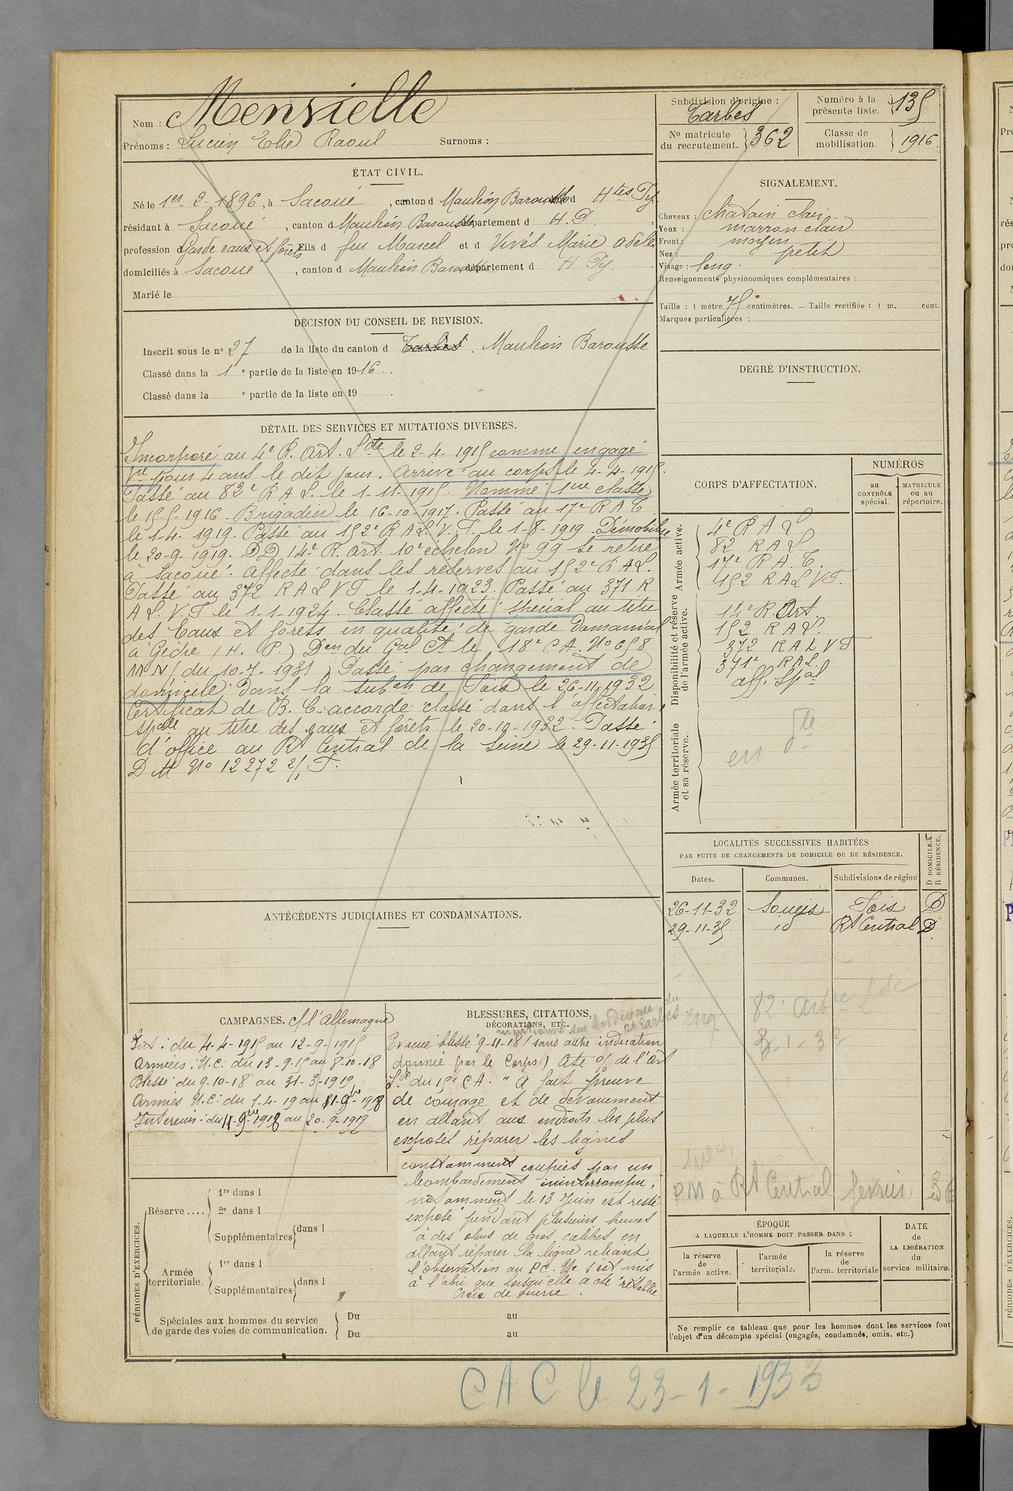 Nom : Mensielle
Prénoms : Lucien Elie Raoul Surnoms :
Subdivision d'origine : Tarbes
Numéro à la présente liste. 135
No matricule du recrutement. 362
Classe de mobilisation. 1916
ÉTAT CIVIL.
Né le 1er-2-1896, à Sacoué, canton d Mauléon Barousse d Htes Py
résidant à Sacoué, canton d Mauléon Barousse département d H. P.
profession d Garde eaux et forêts Fils d feu Marcel et d Vivès Marie Adèle
domiciliés à Sacoué, canton d Mauléon Barousse département d H. Py.
Marié le
SIGNALEMENT.
Cheveux : chatain clair
Yeux : marron clair
Front : moyen
Nez : petit
Visage : long.
Renseignements physionomiques complémentaires :
Taille : 1 mètre 75 centimètres. — Taille rectifiée : 1 m. cent.
Marques particulières :
DÉCISION DU CONSEIL DE REVISION.
Inscrit sous le no 27 de la liste du canton d Tarbes. Mauléon Barousse
Classé dans la 1e partie de la liste en 1916.
Classé dans la e partie de la liste en 19 .
DEGRÉ D'INSTRUCTION.
DÉTAIL DES SERVICES ET MUTATIONS DIVERSES.
Incorporé au 4e R. Art. Lde le 2-4-1915 comme engagé
Vre pour 4 ans le dit jour. Arrivé au corps le 4-4-1915.
Passé au 82e R A L. le 1-11-1915. Nommé 1ère classe
le 15-5-1916. Brigadier le 16-10-1917. Passé au 17e R A C
le 1-4-1919. Passé au 152e R A L V. F. le 1-8-1919. Démobilisé
le 20-9-1919. D D 14e R. Art 10e échelon No 99 se retire
à Sacoué. Affecté dans les réserves au 152e R A L.
Passé au 372 R A L V F le 1-4-1923. Passé au 371 R
A L V F le 1-1-1924. Classé affecté spécial au titre
des Eaux et forêts en qualité de garde domanial
à Gèdre (H. P.) Don du Gal Ct le 18e C A. No 658
M N (du 10-7-1931) Passé par changement de
domicile dans la subon de Foix le 26-11-1932.
Certificat de B. C. accordé classé dans l'affectation
spale au titre des eaux et forêts le 20-12-1932. Passé
d'office au Rt Central de la Seine le 29-11-1935
D M No 12272 2/ F.
CORPS D'AFFECTATION.
NUMÉROS
au CONTRÔLE spécial.
MATRICULE ou au répertoire.
Armée active.
4e R A L
82 R A L
17e R. A. C.
152 R A L V F.
Disponibilité et réserve de l'armée active.
14e R. Art
152 R A L.
372 R A L V F
371e R A L.
aff. Spal
Armée territoriale et sa réserve.
en dte
LOCALITÉS SUCCESSIVES HABITÉES
PAR SUITE DE CHANGEMENTS DE DOMICILE OU DE RÉSIDENCE.
Dates. Communes. Subdivisions de région D DOMICILE. R RÉSIDENCE.
26-11-32 Soueix Foix D
29-11-35. id Rt Central D
ANTÉCÉDENTS JUDICIAIRES ET CONDAMNATIONS.
CAMPAGNES. C/ l'Allemagne
Int : du 4-4-1915 au 12-9-1915
Armées : N.C. du 13-9-15 au 8-10-18
Blessé du 9-10-18 au 31-3-1919
Armées N.C : du 1-4-19 au 11-9bre 1918
Intérieur : du 11-9bre 1918 au 20-9-1919
BLESSURES, CITATIONS,
DÉCORATIONS, ETC.
Evacué blessé 9-11-18 (sans autre indication
donnée par le Corps) Cité O/ de l'Art
Lde du 15e C A. " A fait preuve
de courage et de dévouement
en allant aux endroits les plus
exposés réparer les lignes
constamment coupées par un
bombardement ininterrompu,
notamment le 13 Juin est resté
exposé pendant plusieurs heures
à des obus de gros calibre en
allant réparer la ligne reliant
l'observation au P.C. Ne s'est mis
à l'abri que lorsqu'elle a été rétablie
Croix de guerre.
82e Artie Lde
PM à Rt Central
PÉRIODES D'EXERCICES.
Réserve....
1re dans l
2e dans l
Supplémentaires dans l
Armée territoriale.
1re dans l
Supplémentaires dans l
Spéciales aux hommes du service de garde des voies de communication.
Du au
Du au
ÉPOQUE
A LAQUELLE L'HOMME DOIT PASSER DANS :
la réserve de l'armée active.
l'armée territoriale.
la réserve de l'arm. territoriale
DATE de LA LIBÉRATION du service militaire.
Ne remplir ce tableau que pour les hommes dont les services font
l'objet d'un décompte spécial (engagés, condamnés, omis, etc.)
C A C le 23-1-1933